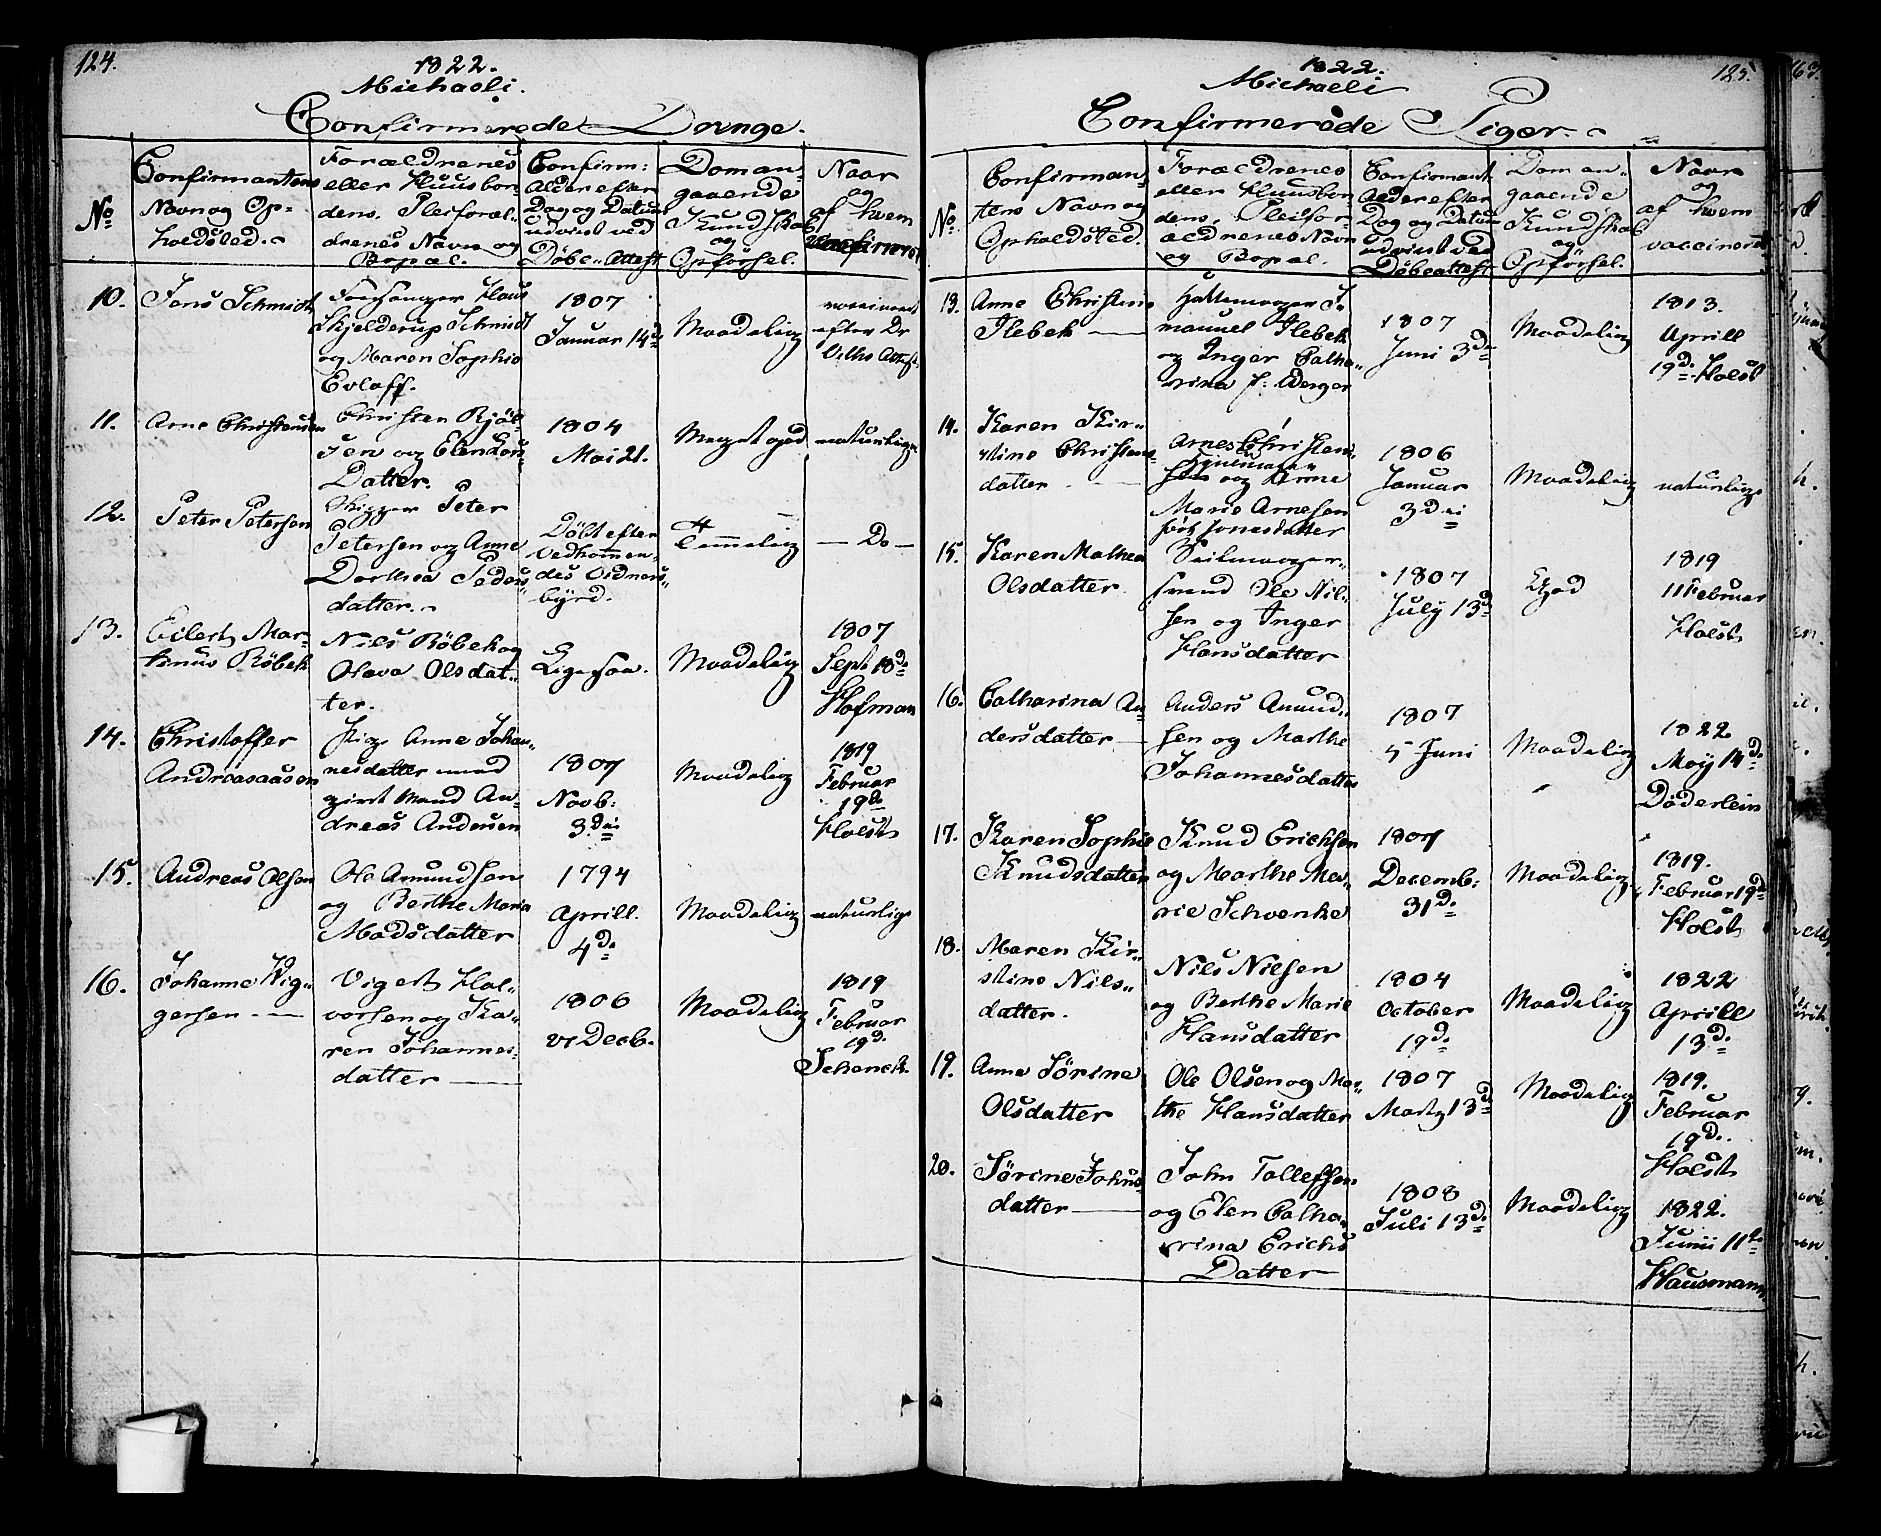 124.
1822.
Michaeli.
Confirmerede Drenge.
No
Confirmantens
Navn og Op-
holdsted.
Forældrenes
eller Huusbon
dens, Pleiforæl-
drenes Navn og
Bopæl.
Confirm:
Alder efter
Dag og Datum
udvist ved
Døbe-Attest
Dom an-
gaaende
Kundskab
og
Opførsel.
Naar
og
af hvem
vaccineret
10.
Jens Schmidt
Hans
Hjelderup Schmidt
og Maren Sophie
1807
Januar 14de
Maadelig
vaccineret
efter Dr
Attest
11.
Arne Christensen
Christen
sen og Elen Lars-
Datter.
1804
Mai 21.
Meget god
naturlige
12.
Peter Petersen
Skipper Peter
Petersen og Anne
Dorthea Peders-
datter.
Døbt efter
Vedkommen-
des Vidnes-
byrd.
Temmelig
— Do —
13.
Eilert Mar-
tinus Röbek
Nils Röbek og
Olava Olsdat-
ter.
Ligesaa.
Maadelig
1807
Sept 18de
Hofman
14.
Christoffer
Andreasaasen
Pige Anne Johan-
nesdatter med
givt Mand An-
dreas Andersen
1807
Novb:
3die
Maadelig
1819
Februar
19de
Holst
15.
Andreas Olsen
Ole Amundsen
og Berthe Maria
Madsdatter
1794
Aprill.
4de
Maadelig
naturlige
16.
Johanne Wig-
gersen
Vigert Hal-
vorsen og Ka-
ren Johannes-
datter
1806
Decb.
Maadelig
1819
Februar
19d.
Schenck
125.
1822.
Michaeli
Confirmerede Piger.
No.
Confirman-
tens Navn og
Opholdsted.
Forældrenes
eller Huusbon
dens, Pleifor-
ældrenes Navn
og Bopæl.
Confirmant
Alder efter
Dag og Datum
udvist ved
Døbeattest
Dom an-
gaaende
Kundskab
og
Opførsel.
Naar
og
af hvem
vaccineret
13.
Anne Christine
Flebek
Hattemager I-
manuel Flebek
og Inger Catha-
rina f: Berger
1807
Juni 3de
Maadelig
1813.
Aprill
19d. Holst
14.
Karen Kir-
stine Christens-
datter
Arnes Christen-
sen og Anne
Marie Arnesen
født Jonasdatter
1806
Januar
3die
Maadelig
naturlige
15.
Karen Mathea
Olsdatter
Seilmager-
svend Ole Nil-
sen og Inger
Hansdatter
1807
July 13de
God
1819
11 Februar
Holst
16.
Catharina An-
dersdatter
Anders Amund-
sen og Marthe
Johannesdatter
1807
5 Juni
Maadelig
1822
May 14de
Døderlein
17.
Karen Sophie
Knudsdatter
Knud Erichsen
og Marthe Ma-
rie Schvenke
1807
Decemb:
31d.
Maadelig
1819.
Februar 19de
Holst
18.
Maren Kir-
stine Nils-
datter.
Nils Nilsen
og Berthe Marie
Hansdatter
1804
October
19d.
Maadelig
1822
Aprill
13d.
19.
Anne Sørine
Olsdatter
Ole Olsen og Mar-
the Hansdatter
1807
Marts 13de
Maadelig
1819.
Februar
19d.
Holst
20.
Sørine Johns-
datter
John Tollefsen
og Elen Catha-
rina Erichs
Datter
1808
Juli 13d.
Maadelig
1822.
Junii 11te
Hausmann